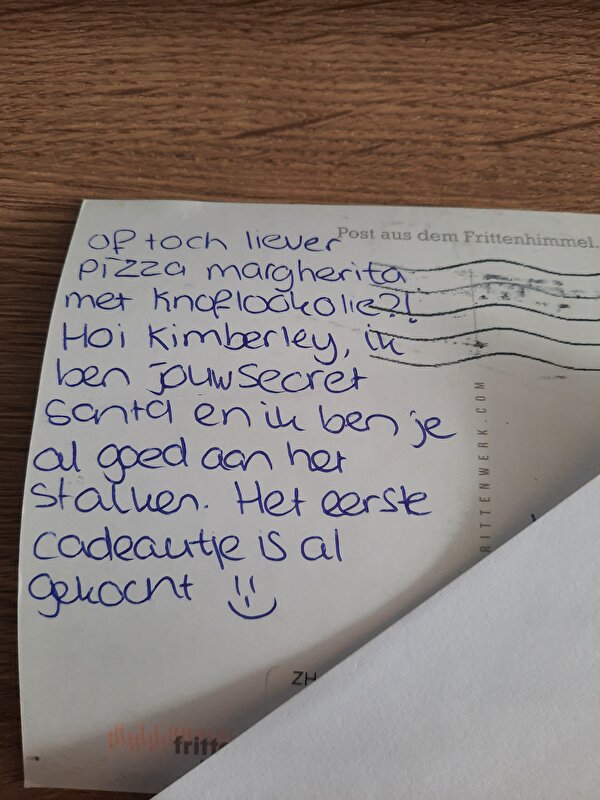 Post aus dem Frittenhimmel.
of toch liever
pizza margherita
met knoflookolie?!
Hoi Kimberley, ik
ben jouw secret
santa en ik ben je
al goed aan het
stalken. Het eerste
cadeautje is al
gekocht
RITTENWERK.COM
ZH
fritte